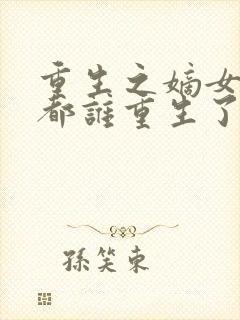 重生之嫡女
都誰重生了
孫笑東